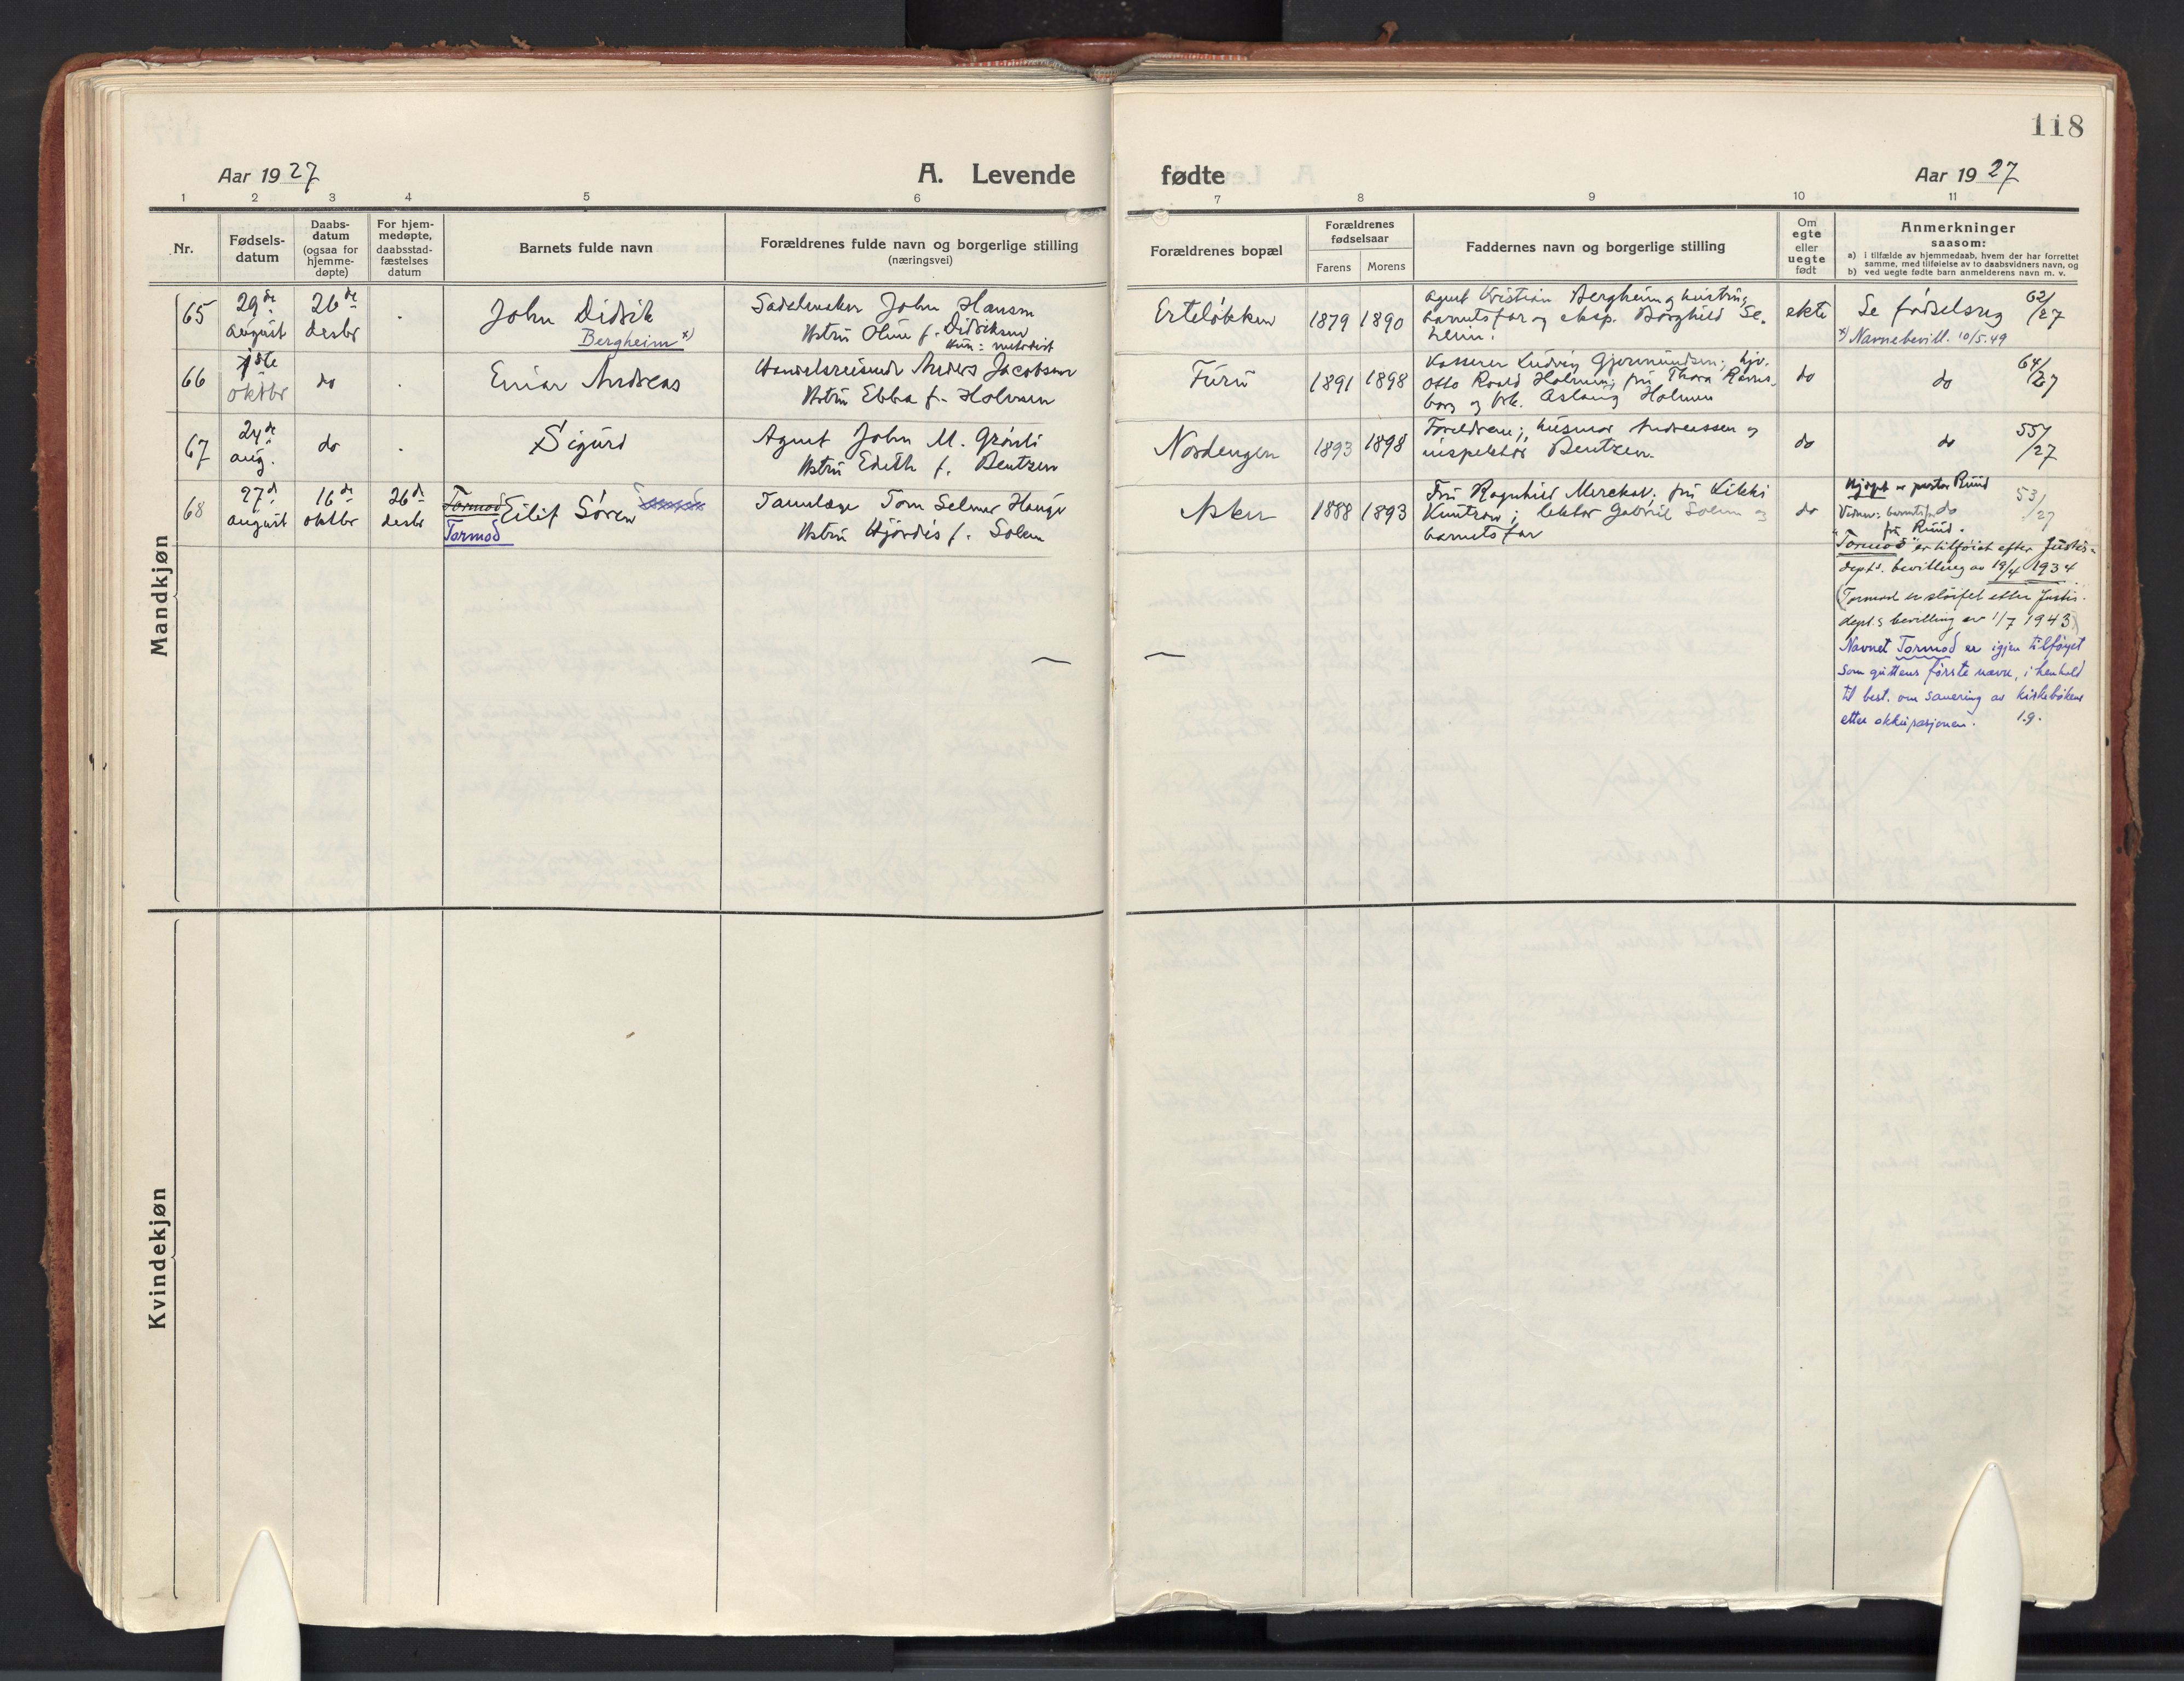 118
Aar 1927
A. Levende
fødte
Aar 1927
1 2 3 4 5 6 7 8 9 10 11
Nr.
Fødsels-
datum
Daabs-
datum
(ogsaa for
hjemme-
døpte)
For hjem-
medøpte,
daabsstad-
fæstelses
datum
Barnets fulde navn
Forældrenes fulde navn og borgerlige stilling
(næringsvei)
Forældrenes bopæl
Forældrenes
fødselsaar
Farens Morens
Faddernes navn og borgerlige stilling
Om
egte
eller
uegte
født
Anmerkninger
saasom:
a) i tilfælde av hjemmedaab, hvem der har forrettet
samme, med tilføielse av to daabsvidners navn, og
b) ved uegte fødte barn anmelderens navn m. v.
Mandkjøn
65
29de
august
26de
desbr
John Didrik
Bergheim x)
John Hansen
Hstru Oline f. Didriksen
Erteløkken
1879 1890
agent Kristian Bergheim og hustru,
barnets far og eksp. Borghild
ekte
Se fødselsreg 62/27
x) Navnebevill. 10/5.49
66
1ste
oktbr
do
Einar Andreas
Handelsreisende Anders Jacobsen
Hstru Ebba f. Holmsen
Furu
1891 1898
Kasserer Ludvig Gjermundsen;
Otto Roald Holmsen; fru Thora
borg og frk. Aslaug Holmsen
do
do 64/27
67
24de
aug.
do
Sigurd
Agent John M. Grønli
Hstru Edith f. Bentzen
Nordengen
1893 1898
Foreldrene; husmor Andreassen og
inspektør Bentzen.
do
do 55/27
68
27d
august
16de
oktbr
26d
desbr
Tormod Eilif Søren
Tormod
Tannlæge Tom Selmer Hauge
Hstru Hjørdis f. Solem
Asker
1888 1893
Fru Ragnhild fru Kikki
lektor Gabriel Solem og
barnets far
do
Hjdøpt av pastor Ruud
Vidner: barnets far do 53/27
fru Ruud.
"Tormod" er tilføiet efter Justis-
dept.s bevilling av 19/4 1934
(Tormod er sløifet etter Justis-
dept.s bevilling av 1/7 1943)
Navnet Tormod er igjen tilføyet
som guttens første navn, i henhold
til best. om sanering av kirkebøkene
etter okkupasjonen.
Kvindekjøn